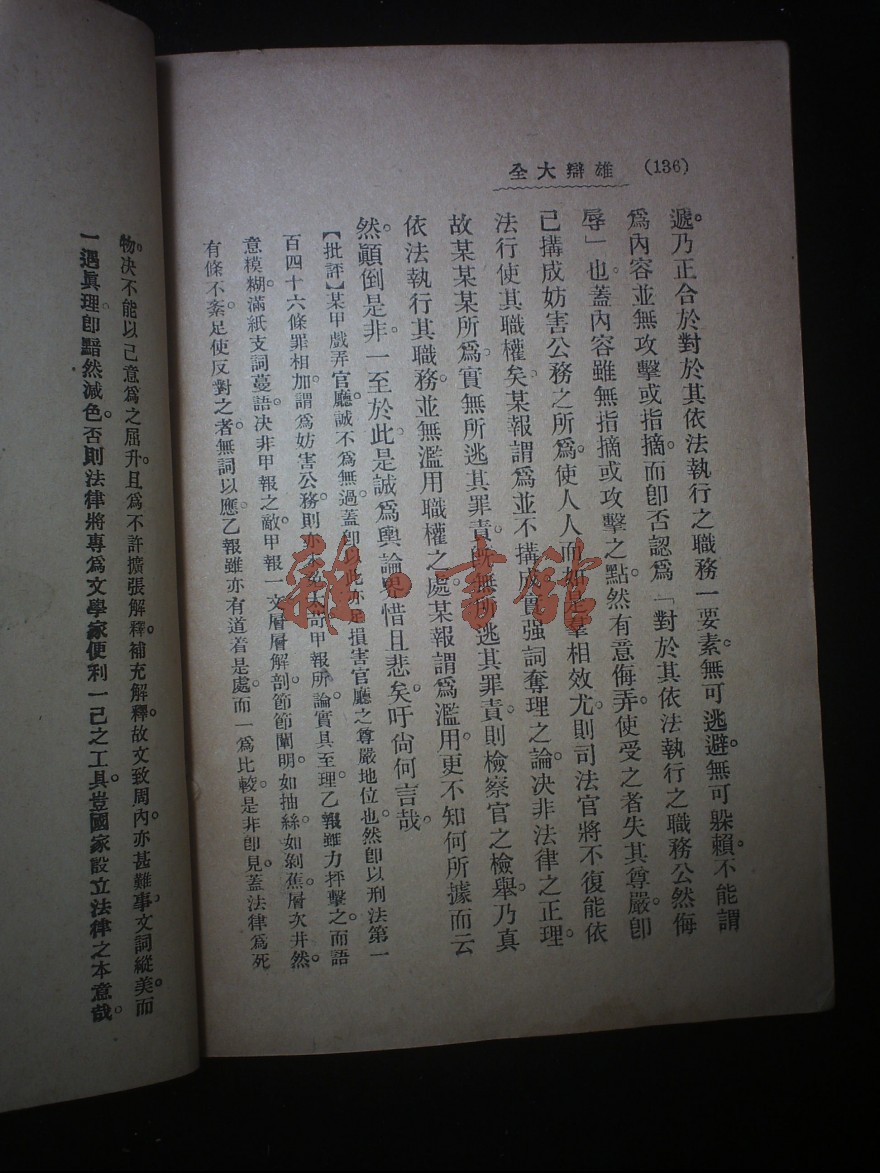 (136) 雄辯大全
遞。乃正合於對於其依法執行之職務一要素。無可逃避。無可躲賴。不能謂
爲內容並無攻擊或指摘。而卽否認爲「對於其依法執行之職務公然侮
辱」也。蓋內容雖無指摘或攻擊之點。然有意侮弄。使受之者失其尊嚴。卽
已搆成妨害公務之所爲。使人人而如是羣相效尤。則司法官將不復能依
法行使其職權矣。某報謂爲並不搆成。實强詞奪理之論。決非法律之正理。
故某某某所爲。實無所逃其罪責。旣無所逃其罪責。則檢察官之檢舉。乃眞
依法執行其職務。並無濫用職權之處。某報謂爲濫用。更不知何所據而云
然。顚倒是非。一至於此。是誠爲輿論界惜且悲矣。吁尙何言哉。
【批評】某甲戲弄官廳。誠不爲無過。蓋卽此亦足損害官廳之尊嚴地位也。然卽以刑法第一
百四十六條罪相加。謂爲妨害公務。則亦未必大可。甲報所論。實具至理。乙報雖力抨擊之。而語
意模糊。滿紙支詞蔓語。決非甲報之敵。甲報一文。層層解剖。節節闡明。如抽絲。如剝蕉。層次井然。
有條不紊。足使反對之者。無詞以應。乙報雖亦有道着是處。而一爲比較。是非卽見。蓋法律爲死
物。決不能以己意爲之屈升。且爲不許擴張解釋。補充解釋。故文致周內。亦甚難事。文詞縱美。而
一遇眞理。卽黯然減色。否則法律將專爲文學家便利一己之工具。豈國家設立法律之本意哉。
雜·書館